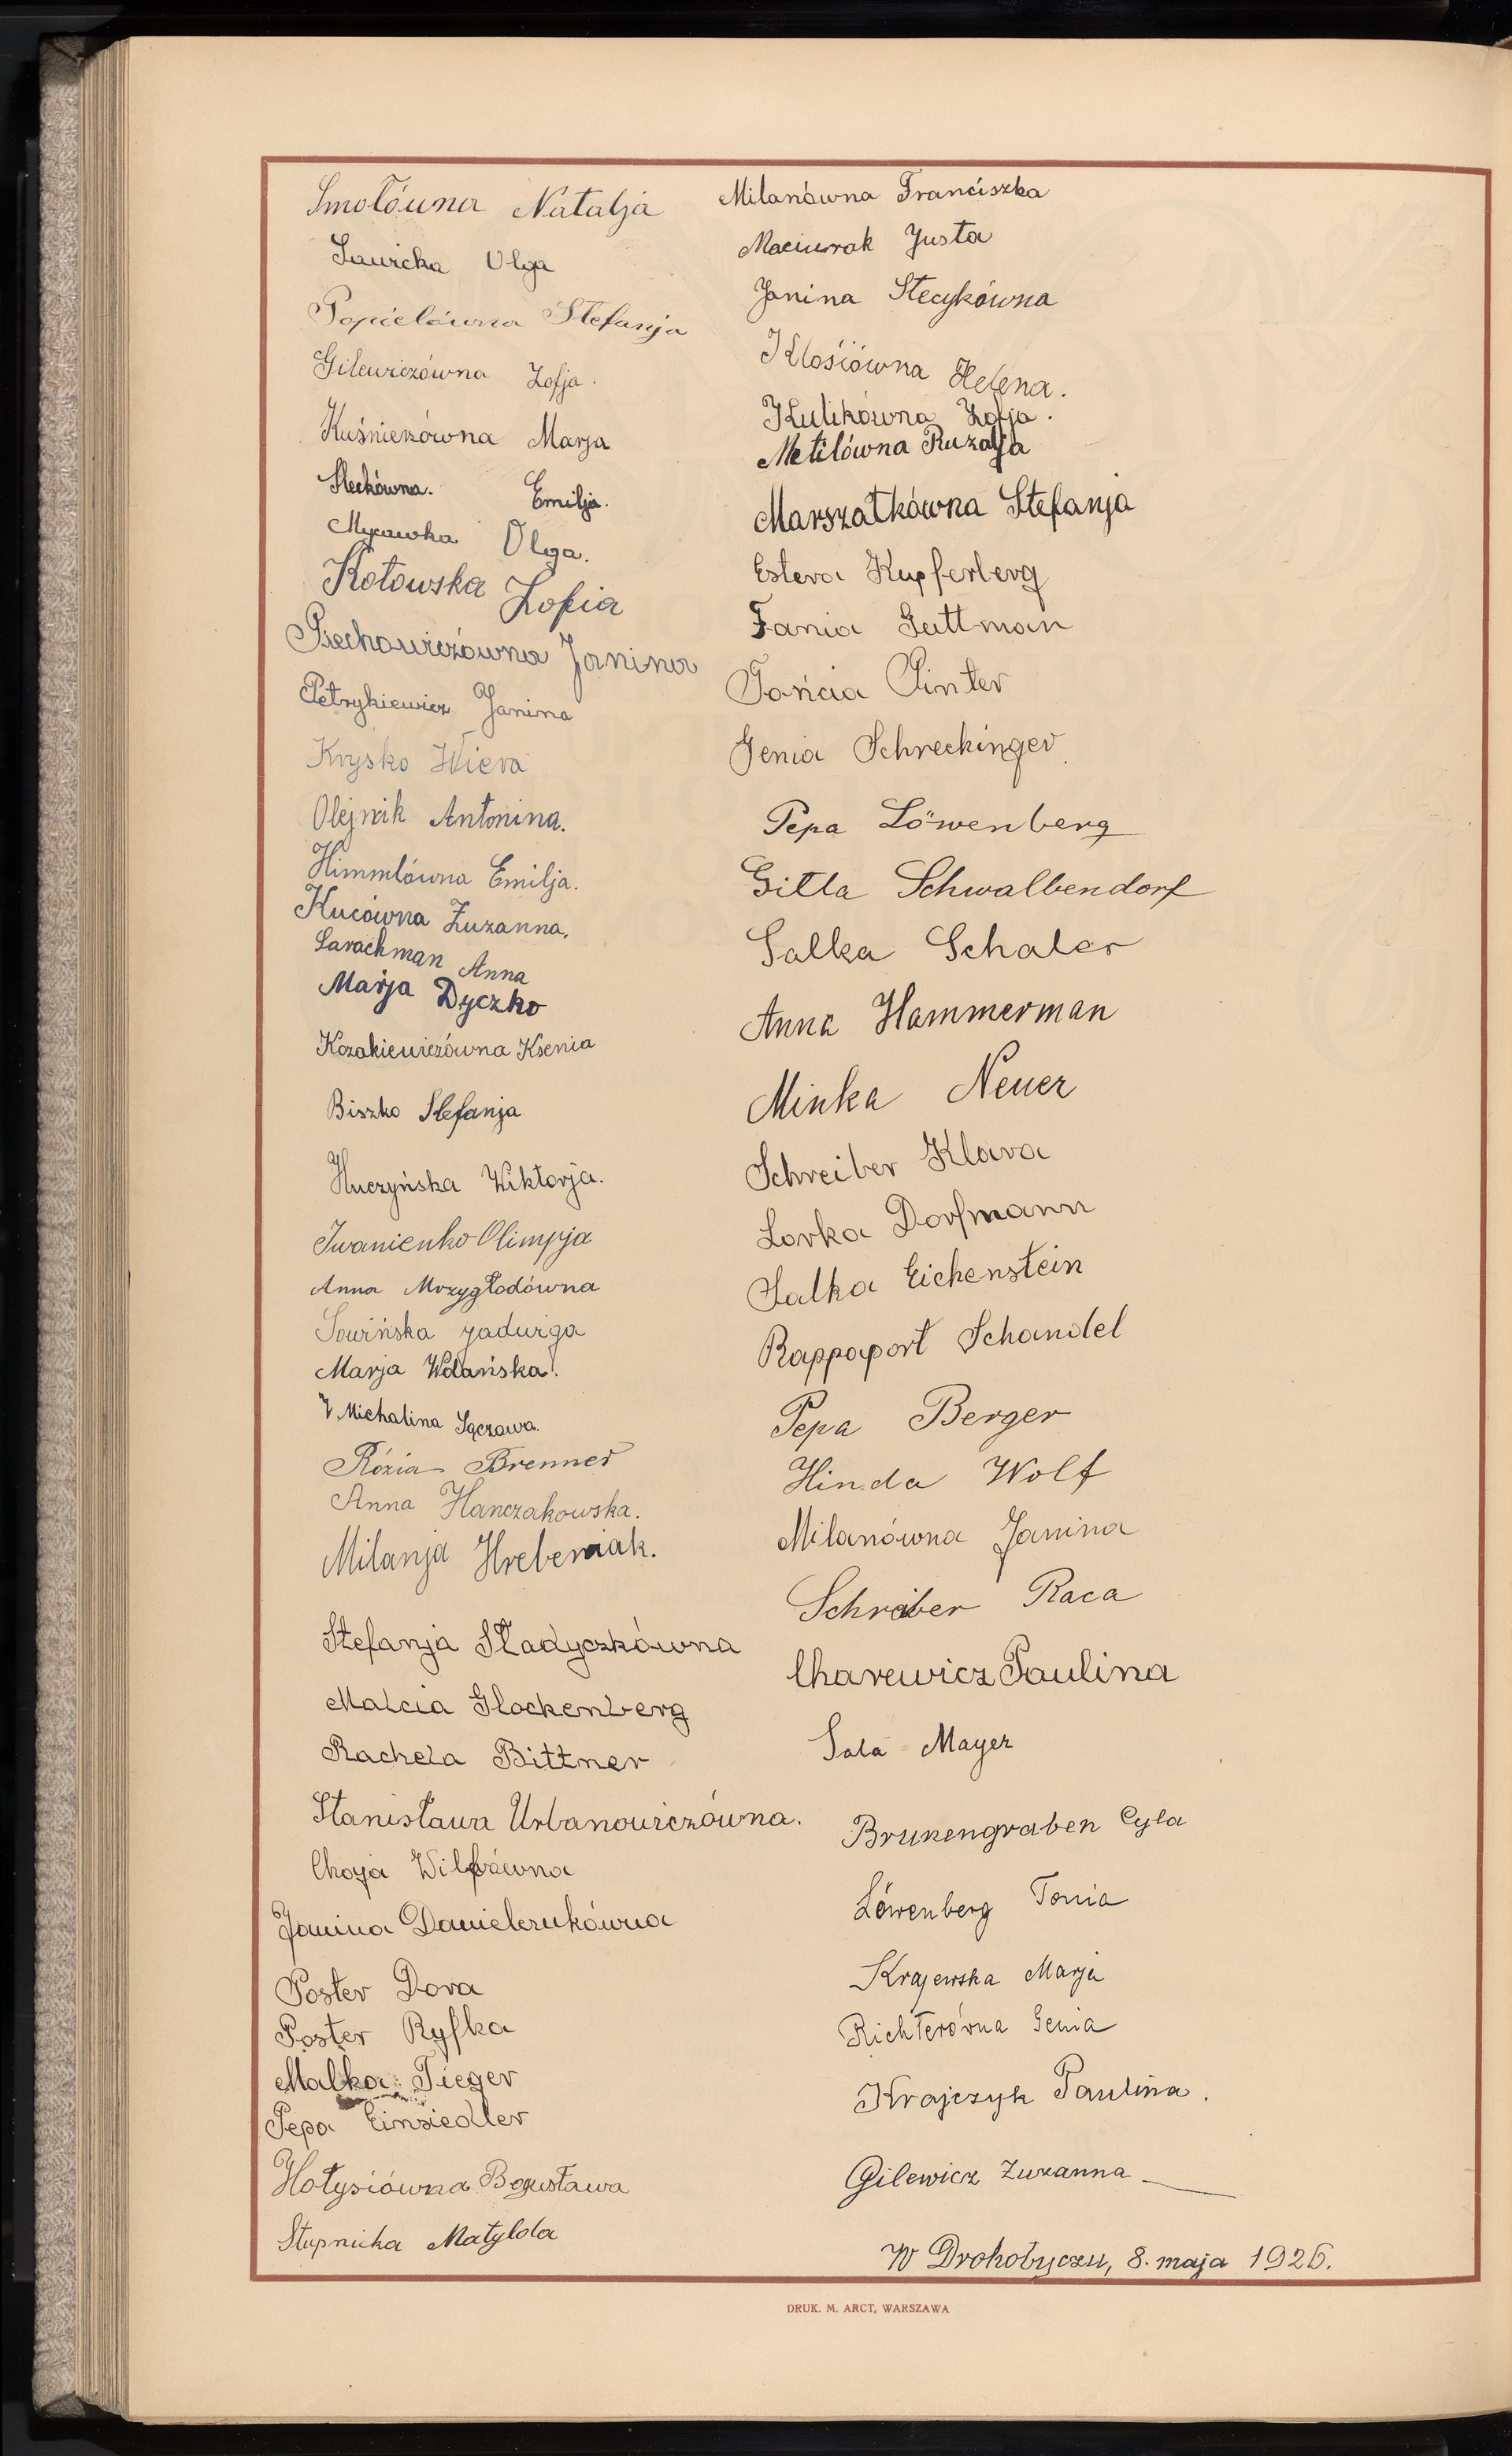 Smołówna Natalja
Sawicka Olga
Popielówna Stefanja
Gilewiczówna Zofja.
Kuśnierzówna Marja
Steckówna. Emilja.
Mycawka Olga.
Kotowska Zofia
Piechowiczówna Janina
Petrykiewicz Janina
Krysko Wiera
Olejnik Antonina.
Himmlówna Emilja.
Kucówna Zuzanna,
Sarachman Anna
Marja Dyczko
Kozakiewiczówna Ksenia
Biszko Stefanja
Huczyńska Wiktorja.
Iwanienko Olimpja
Anna Mrzygłodówna
Sowińska Jadwiga
Marja Wolańska.
Michalina Sączawa.
Rózia Brenner
Anna Hanczakowska.
Milanja Hrebeniak.
Stefanja Sładyczkówna
Malcia Glockenberg
Rachela Bittner
Stanisława Urbanowiczówna.
Chaja Wilfówna
Janina Danielczukówna
Poster Dora
Poster Ryfka
Malka Tieger
Pepa Einsiedler
Hołysiówna Bogusława
Stupnicka Matylda
Milanówna Franciszka
Maciurak Justa
Janina Stecykówna
Kłosiówna Helena.
Kulikówna Zofja.
Metilówna Ruzalja
Marszałkówna Stefanja
Estera Kupferberg
Fania Guttman
Tońcia Pinter
Genia Schreckinger
Pepa Löwenberg
Gitla Schwalbendorf
Salka Schaler
Anna Hammerman
Minka Neuer
Schreiber Klara
Lorka Dorfmann
Salka Eichenstein
Rappaport Schandel
Pepa Berger
Hinda Wolf
Milanówna Janina
Schreiber Raca
Charewicz Paulina
Sala Mayer
Brunengraben Cyla
Löwenberg Tonia
Krajewska Marja
Richterówna Genia
Krajczyk Paulina.
Gilewicz Zuzanna
W Drohobyczu, 8. maja 1926.
DRUK. M. ARCT, WARSZAWA